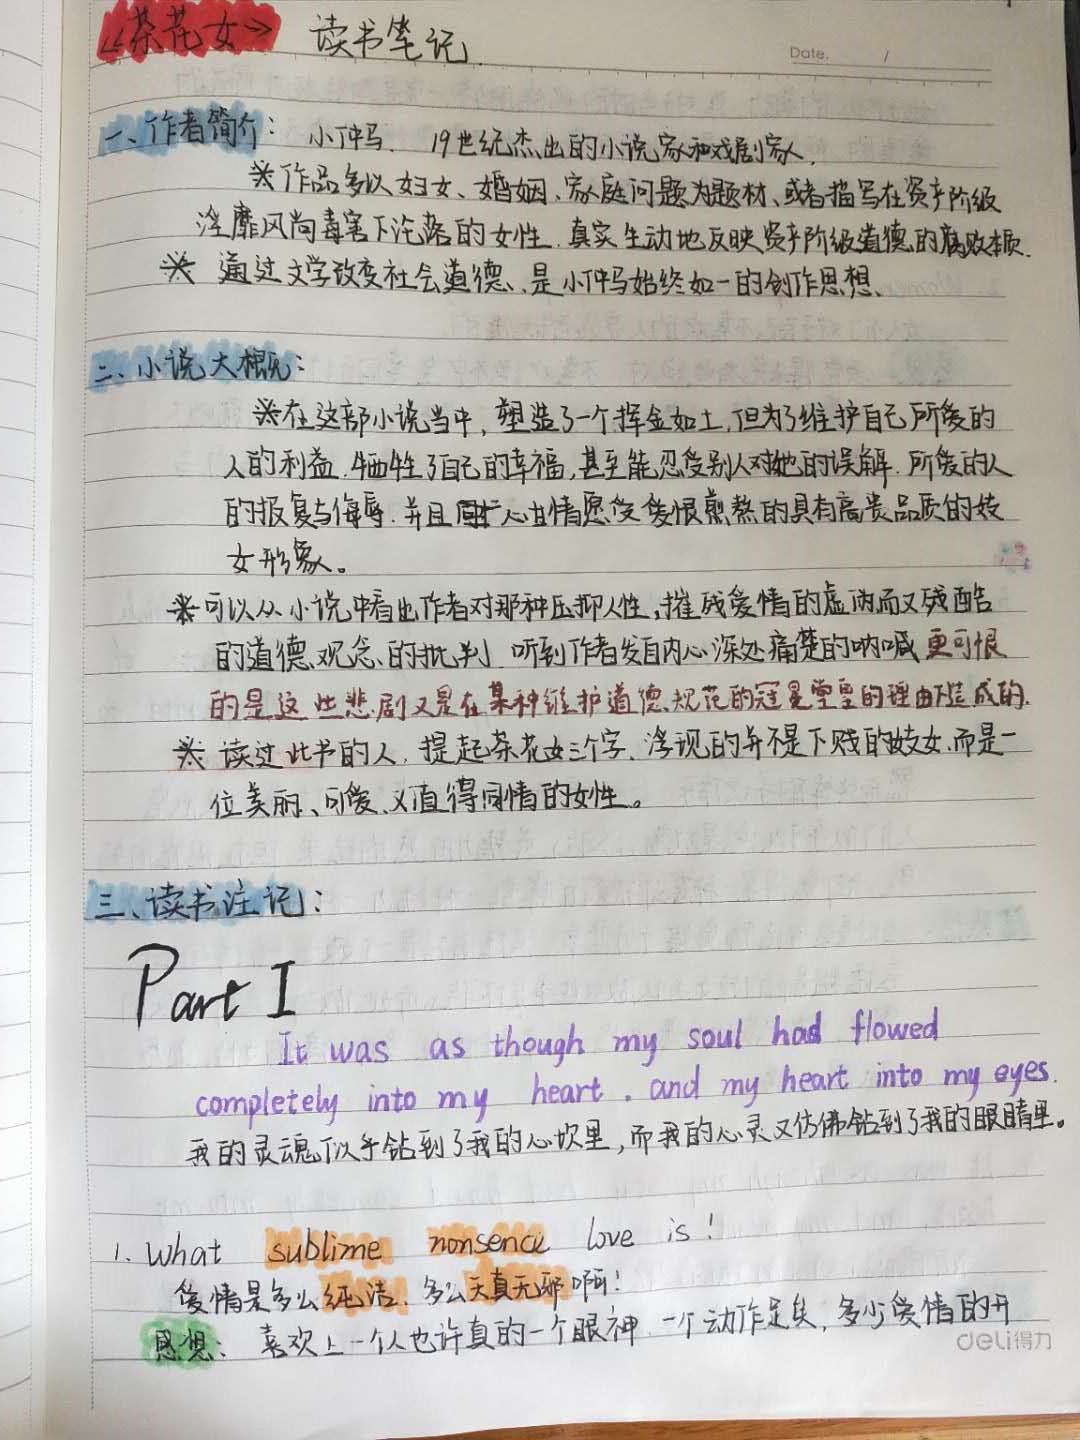 《茶花女》 读书笔记.
Date. /
一、作者简介: 小仲马. 19世纪杰出的小说家和戏剧家.
※作品多以妇女、婚姻、家庭问题为题材、或者描写在资产阶级
淫靡风尚毒害下沦落的女性. 真实生动地反映资产阶级道德的腐败本质.
※ 通过文学改变社会道德、是小仲马始终如一的创作思想、
二、小说大概:
※在这部小说当中, 塑造了一个挥金如土, 但为了维护自己所爱的
人的利益. 牺牲了自己的幸福, 甚至能忍受别人对她的误解. 所爱的人
的报复与侮辱. 并且 心甘情愿受爱恨煎熬的具有高贵品质的妓
女形象。
※可以从小说中看出作者对那种压抑人性, 摧残爱情的虚伪而又残酷
的道德观念的批判. 听到作者发自内心深处痛楚的呐喊 更可恨
的是这些悲剧又是在某种维护道德规范的冠冕堂皇的理由下造成的.
※ 读过此书的人, 提起茶花女三个字. 浮现的并不是下贱的妓女、而是一
位美丽、可爱、又值得同情的女性。
三、读书注记:
Part I
It was as though my soul had flowed
completely into my heart . and my heart into my eyes.
我的灵魂似乎钻到了我的心坎里, 而我的心灵又仿佛钻到了我的眼睛里。
1. What sublime nonsence love is!
爱情是多么纯洁. 多么天真无邪啊!
感想: 喜欢上一个人也许真的一个眼神 一个动作足矣, 多少爱情的开
deli得力